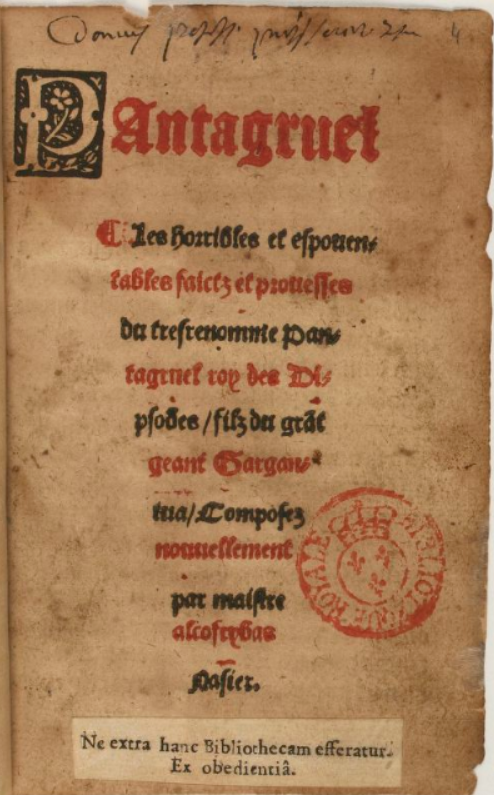 Pantagruel
Les horribles et espouen-
tables faictz et prouesses
du tresrenomme Pan-
tagruel roy des Di-
psodes / filz du grāt
geant Gargan-
tua / Composez
nouuellement
par maistre
alcofrybas
Nasier.
BIBLIOTHEQUE ROYALE
Ne extra hanc Bibliothecam efferatur.
Ex obedientiâ.